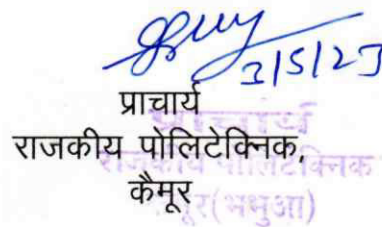 3/5/23
प्राचार्य
राजकीय पोलिटेक्निक,
कैमूर
प्राचार्य
राजकीय पोलिटेक्निक
कैमूर(भभुआ)